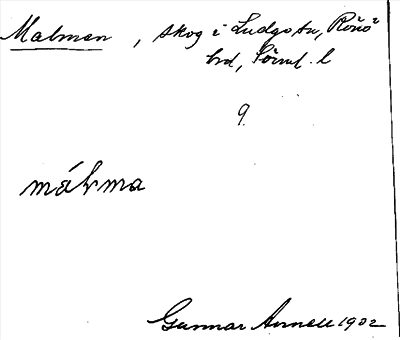 Malmen, skog i Ludgo sn, Rönö
hd, Sörml. l
9.
málma
Gunnar Annell 1902